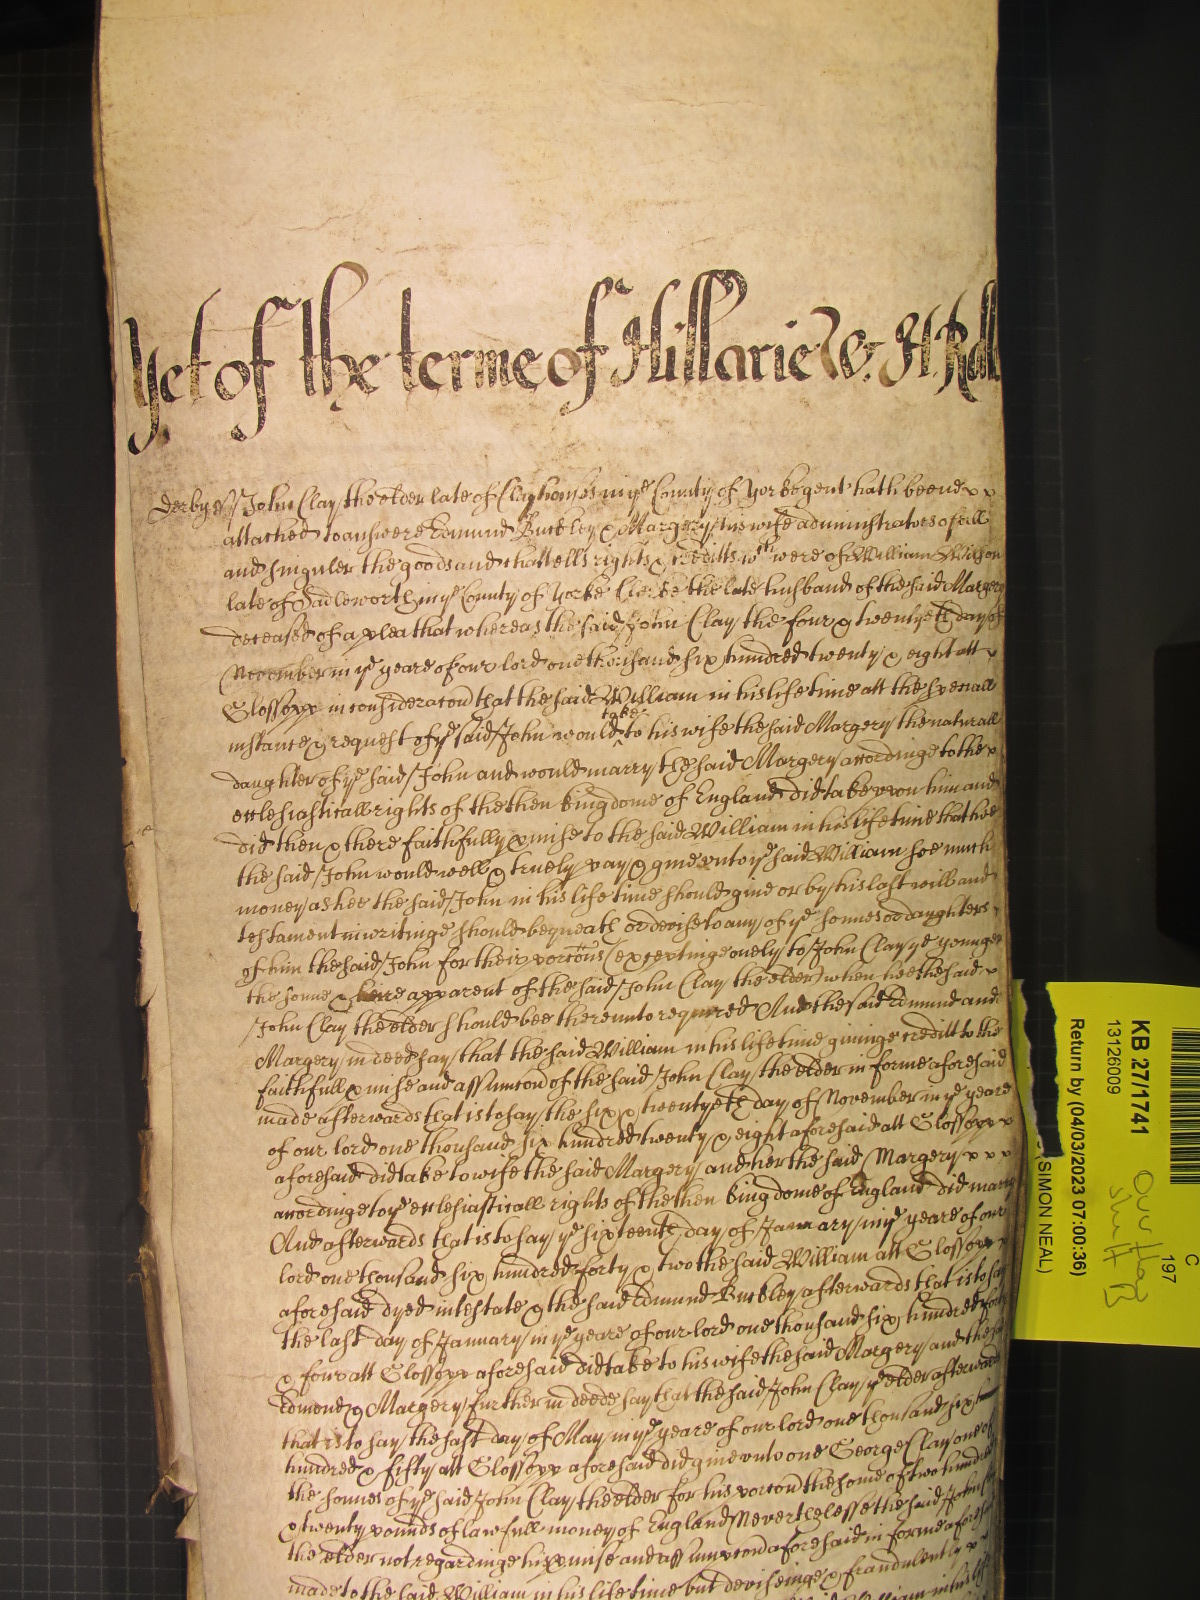 Yet of the terme of Hillarie W: St: Roll
Derby ss John Clay the elder late of in ye County of Yorke gent hath beene x x
attached to answere Edmund Buckley & Margery his wife administrators of all
and singuler the goods and chattells rights & creditts wch were of William Wilson
late of Sadleworth in ye County of Yorke Clerke the late husband of the said Margery
deceased of a plea that whereas the said John Clay the four & twentyeth day of
November in ye yeare of our lord one thousand six hundred twenty & eight att x
Glossopp in consideracon that the said William in his life time att the speciall
instance & request of ye said John would ^take to his wife the said Margery the naturall
daughter of ye said John and would marry the said Margery accordinge to the x
ecclesiasticall rights of the then kingdome of England did take upon him and
did then & there faithfully pmise to the said William in his life time that hee
the said John would well & truely pay & give unto ye said William soe much
money as hee the said John in his life time should give or by his last will and
testament in writinge should bequeath or devise to any of ye sonnes or daughters
of him the said John for their porcons (exceptinge onely to John Clay ye younger
the sonne & heire apparent of the said John Clay the elder) when hee the said x
John Clay the elder should bee thereunto required And the said Edmund and
Margery in deed say that the said William in his life time givinge creditt to the
faithfull pmise and assumpcon of the said John Clay the elder in forme aforesaid
made afterwards that is to say the six & twentyeth day of November in ye yeare
of our lord one thousand six hundred twenty & eight aforesaid att Glossopp x
aforesaid did take to wife the said Margery and her the said Margery x x x
accordinge to ye ecclesiasticall rights of the then kingdome of England did marry
And afterwards that is to say ye sixteenth day of January in ye yeare of our
lord one thousand six hundred forty & two the said William att Glossopp x
aforesaid dyed intestate & the said Edmund Buckley afterwards that is to say
the last day of January in ye yeare of our lord one thousand six hundred forty
& four att Glossopp aforesaid did take to his wife the said Margery and the sd
Edmond & Margery further in deede say that the said John Clay ye elder afterwards
that is to say the last day of May in ye yeare of our lord one thousand six
hundred & fifty att Glossopp aforesaid did give unto one George Clay one of
the sonnes of ye said John Clay the elder for his porcon the some of two hundred
& twenty pounds of lawfull money of England Neverthelesse the said John
the elder not regardinge his pmise and assumpcon aforesaid in forme aforesaid
made to the said William in his life time but deviseinge & fraudulently x x
William in his life
C
197
KB 27/1741
13126009
Return by (04/03/2023 07:00:36)
(SIMON NEAL)